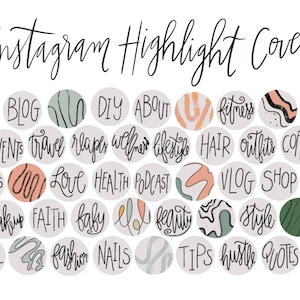 Instagram Highlight Cove
BLOG DIY ABOUT fitness
ENTS travel recipes wellness lifestyle HAIR outfits CO
Love HEALTH PODCAST VLOG SHOP
FAITH baby beauty style
fashion NAILS TIPS hustle QUOTES